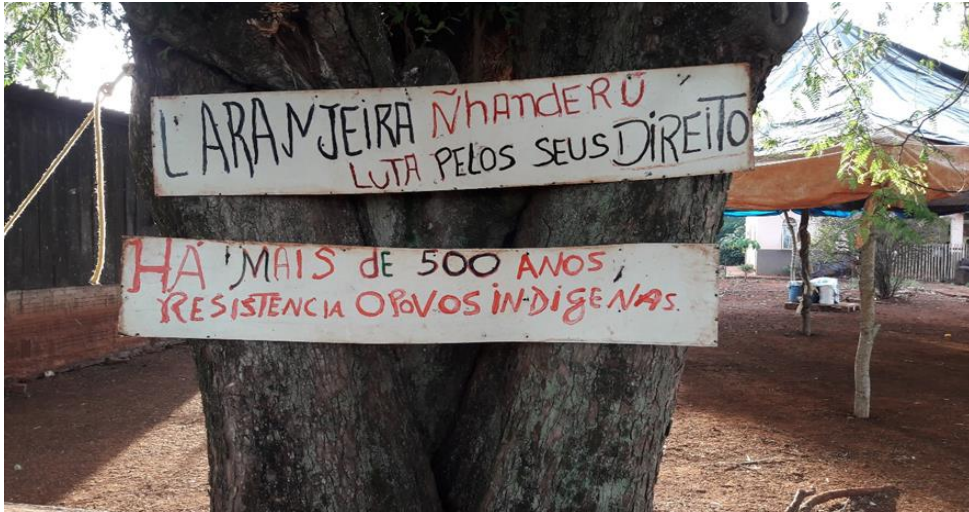 LARANJEIRA ÑhANdERÚ
LUTA PELOS SEUS DIREITO
HÁ MAIS dE 500 ANOS,
RESISTENCIA O POVOS INDIGENAS.